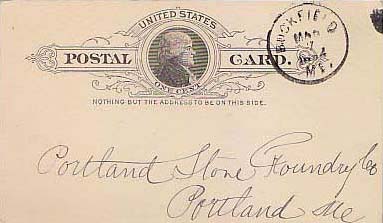 UNITED STATES
POSTAL CARD.
ONE CENT
NOTHING BUT THE ADDRESS TO BE ON THIS SIDE.
BUCKFIELD
MAR
7
ME.
Portland Stone Foundry Co
Portland Me